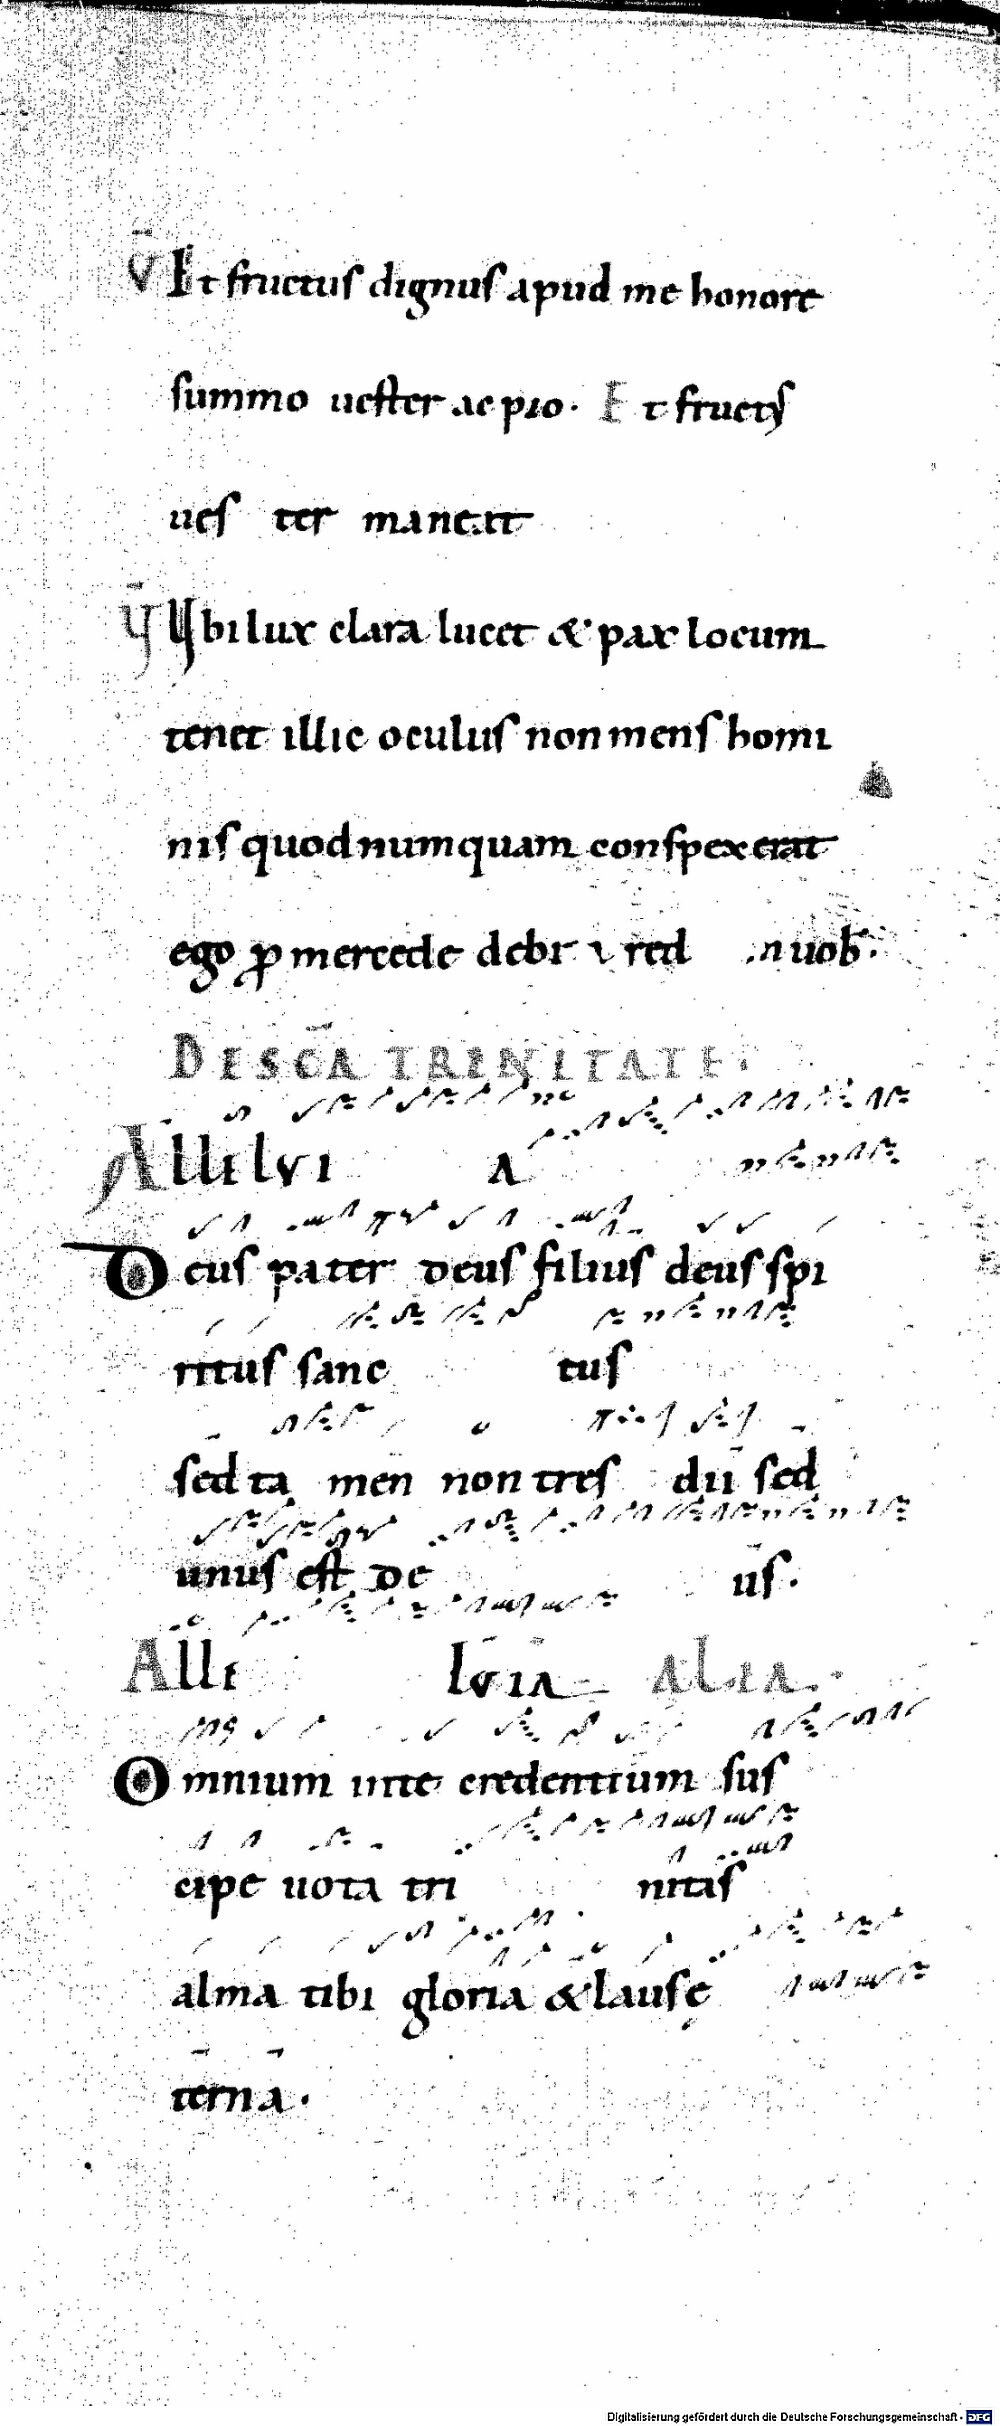 V̄ Et fructus dignus apud me honore
summo uester ac pio · Et fructus
ues ter maneat
V̄ Vbi lux clara lucet & pax locum
tenet illic oculus non mens homi
nis quod numquam conspexerat
ego ꝓ mercede debi red uob·
DE SC̄A TRINITATE·
Allelvi a
Deus pater deus filius deus spi
ritus sanc tus
sed ta men non tres dii sed
unus est de us·
Alle lvia alia·
Omnium in te credentium sus
cipe uota tri nitas
alma tibi gloria & laus ę
terna·
Digitalisierung gefördert durch die Deutsche Forschungsgemeinschaft - DFG